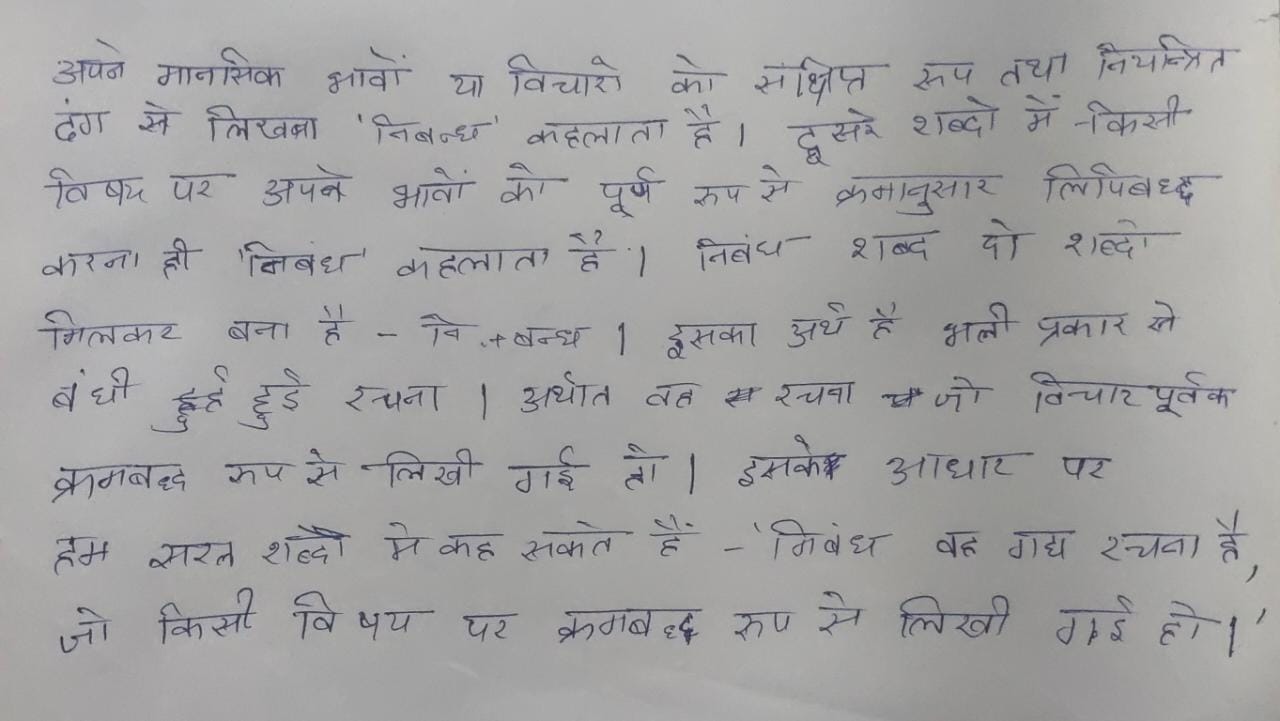 अपने मानसिक भावों या विचारो को संक्षिप्त रूप तथा नियन्त्रित
ढंग से लिखना 'निबन्ध' कहलाता है। दूसरे शब्दो में किसी
विषय पर अपने भावों को पूर्ण रूप से क्रमानुसार लिपिबध्द
करना ही 'निबंध' कहलाता है। निबंध शब्द दो शब्दो
मिलकर बना है - नि + बन्ध। इसका अर्थ है भली प्रकार से
बंधी हुई रचना। अर्थात वह रचना जो विचारपूर्वक
क्रमबध्द रूप से लिखी गई हो। इसके आधार पर
हम सरल शब्दों मे कह सकते हैं - 'निबंध वह गद्य रचना है,
जो किसी विषय पर क्रमबध्द रूप से लिखी गई हो।'